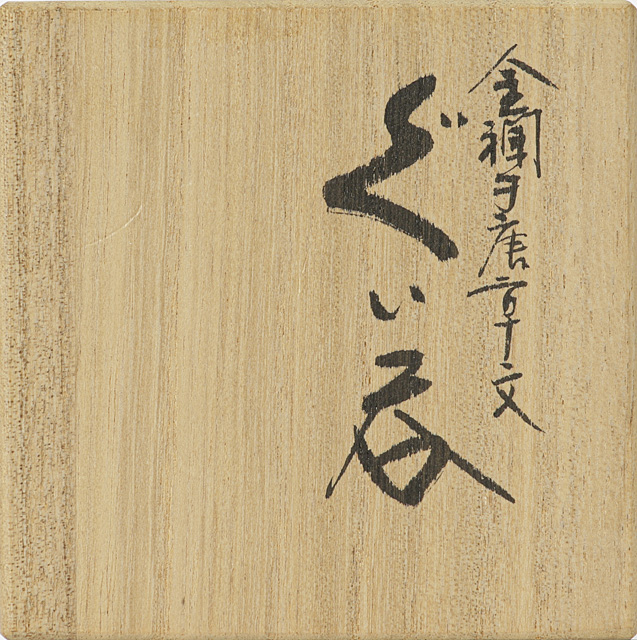 金襴手唐草文
ぐい呑